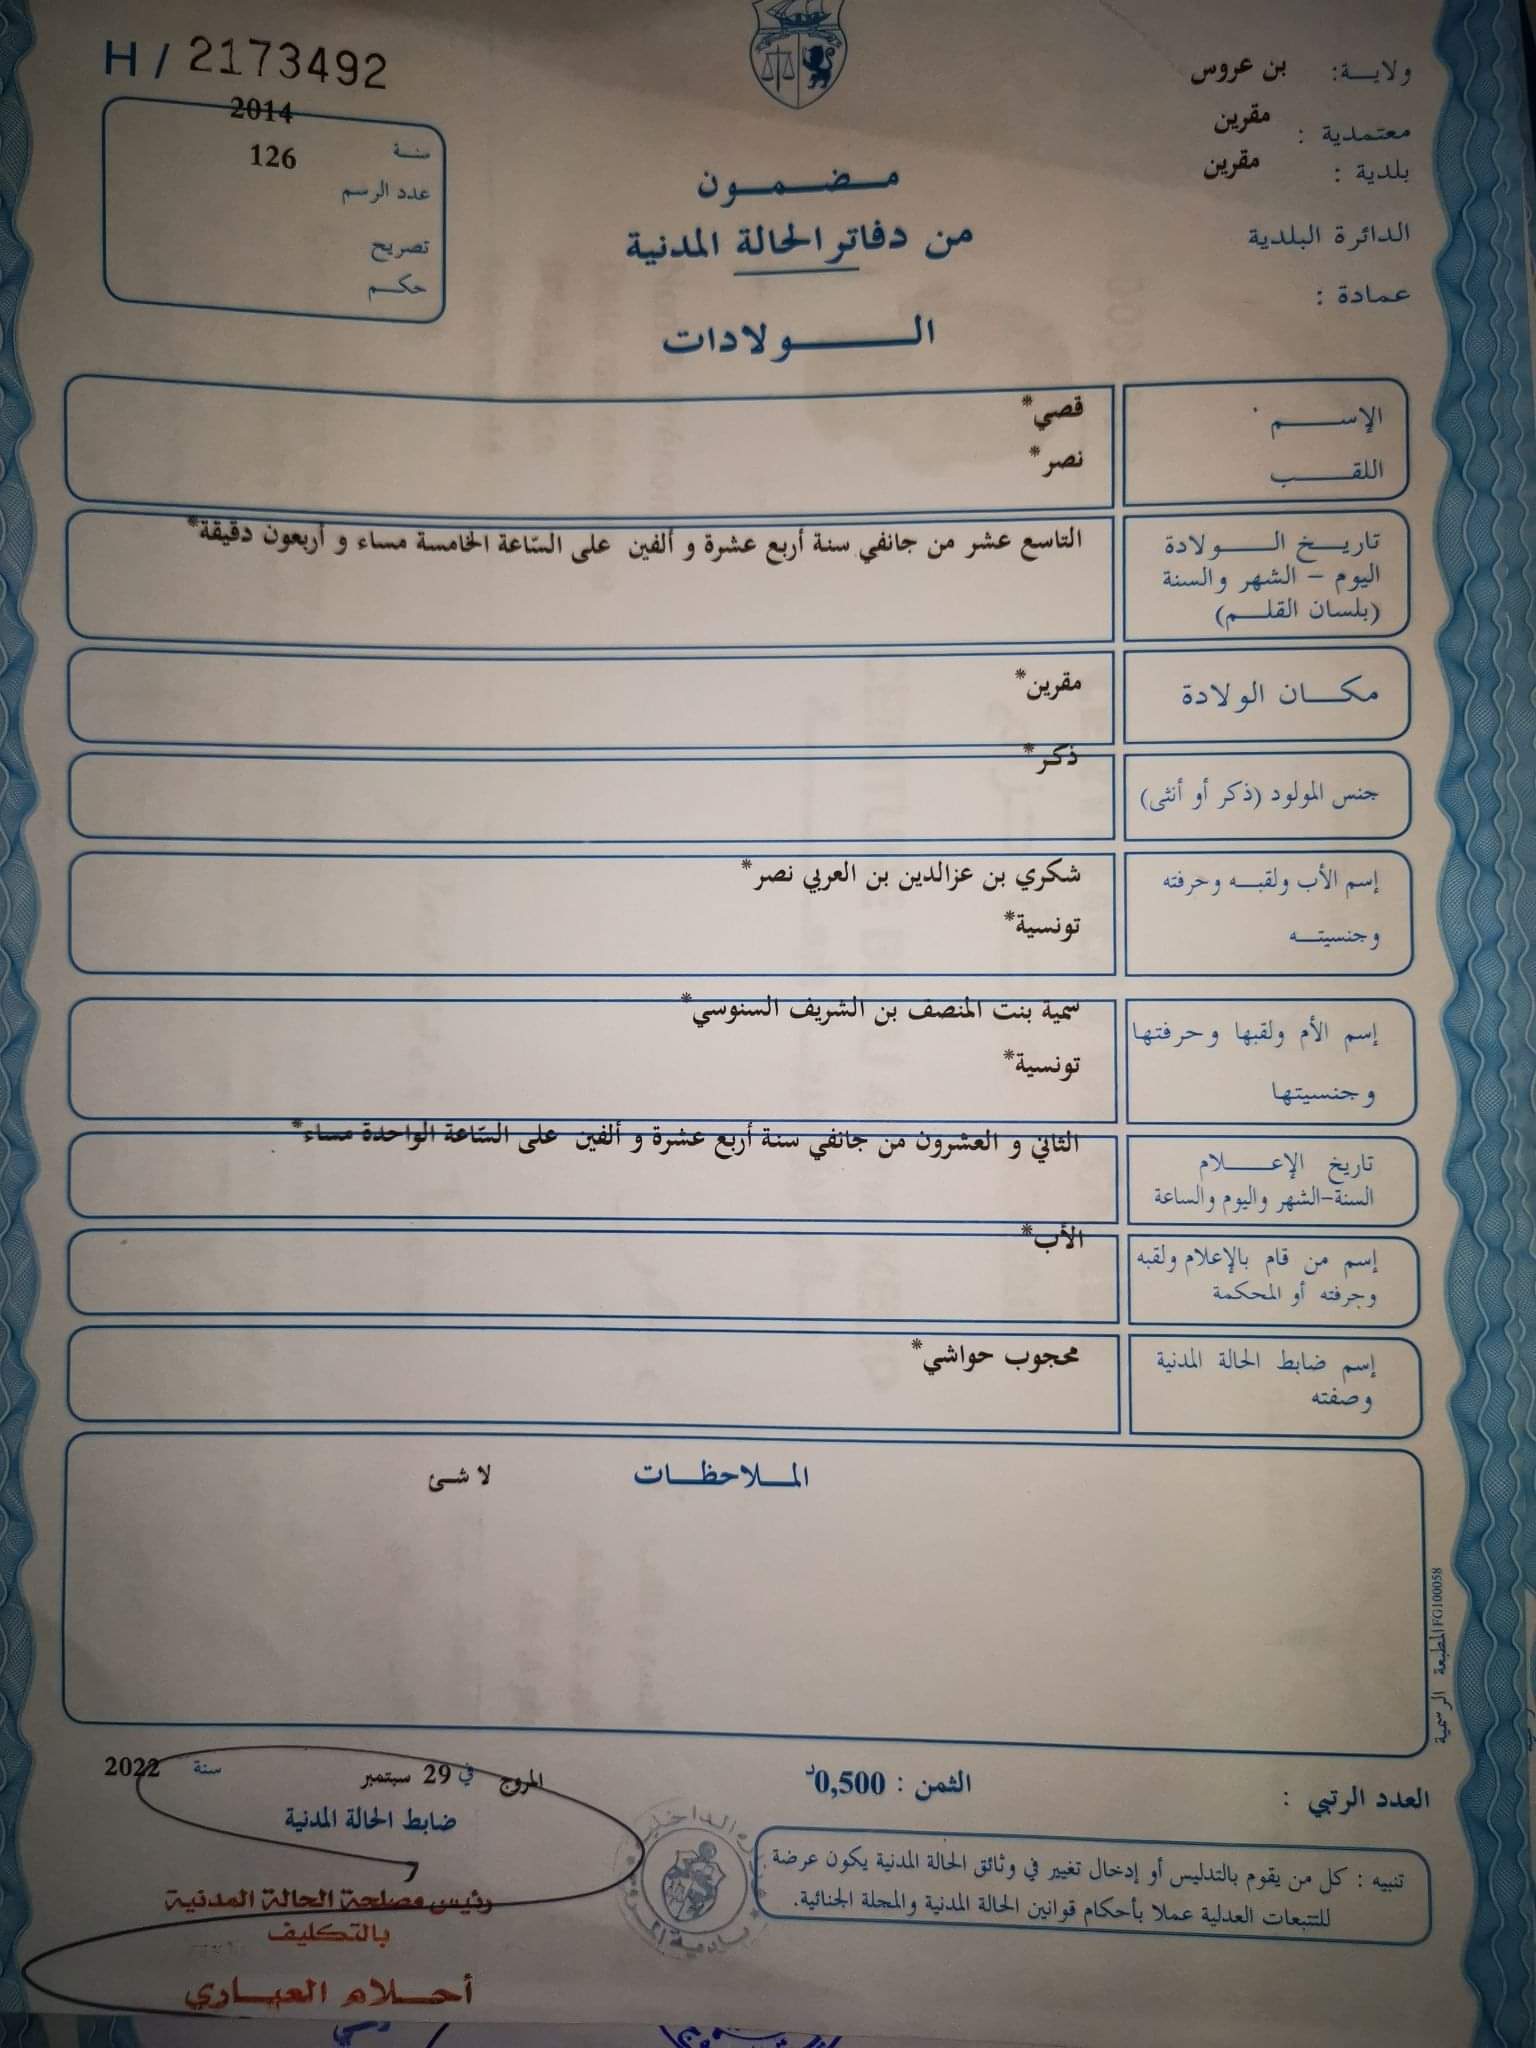 H / 2173492
2014
سنة
126
عدد الرسم
تصريح
حكم
ولاية: بن عروس
معتمدية : مقرين
بلدية : مقرين
الدائرة البلدية
عمادة :
مضمون
من دفاتر الحالة المدنية
الولادات
الإسم قصي*
اللقب نصر*
تاريخ الولادة
اليوم - الشهر والسنة
(بلسان القلم)
التاسع عشر من جانفي سنة أربع عشرة و ألفين على السّاعة الخامسة مساء و أربعون دقيقة*
مكان الولادة مقرين*
جنس المولود (ذكر أو أنثى) ذكر*
إسم الأب ولقبه وحرفته شكري بن عزالدين بن العربي نصر*
وجنسيته تونسية*
إسم الأم ولقبها وحرفتها سمية بنت المنصف بن الشريف السنوسي*
وجنسيتها تونسية*
تاريخ الإعلام
السنة-الشهر واليوم والساعة
الثاني و العشرون من جانفي سنة أربع عشرة و ألفين على السّاعة الواحدة مساء*
إسم من قام بالإعلام ولقبه
وحرفته أو المحكمة
الأب*
إسم ضابط الحالة المدنية
وصفته
محجوب حواشي*
الملاحظات لا شئ
المطبعة الرسمية FG100058
العدد الرتبي :
الثمن : 0,500د
المروج في 29 سبتمبر سنة 2022
ضابط الحالة المدنية
تنبيه : كل من يقوم بالتدليس أو إدخال تغيير في وثائق الحالة المدنية يكون عرضة
للتتبعات العدلية عملا بأحكام قوانين الحالة المدنية والمجلة الجنائية.
رئيس مصلحة الحالة المدنية
بالتكليف
أحلام العباري